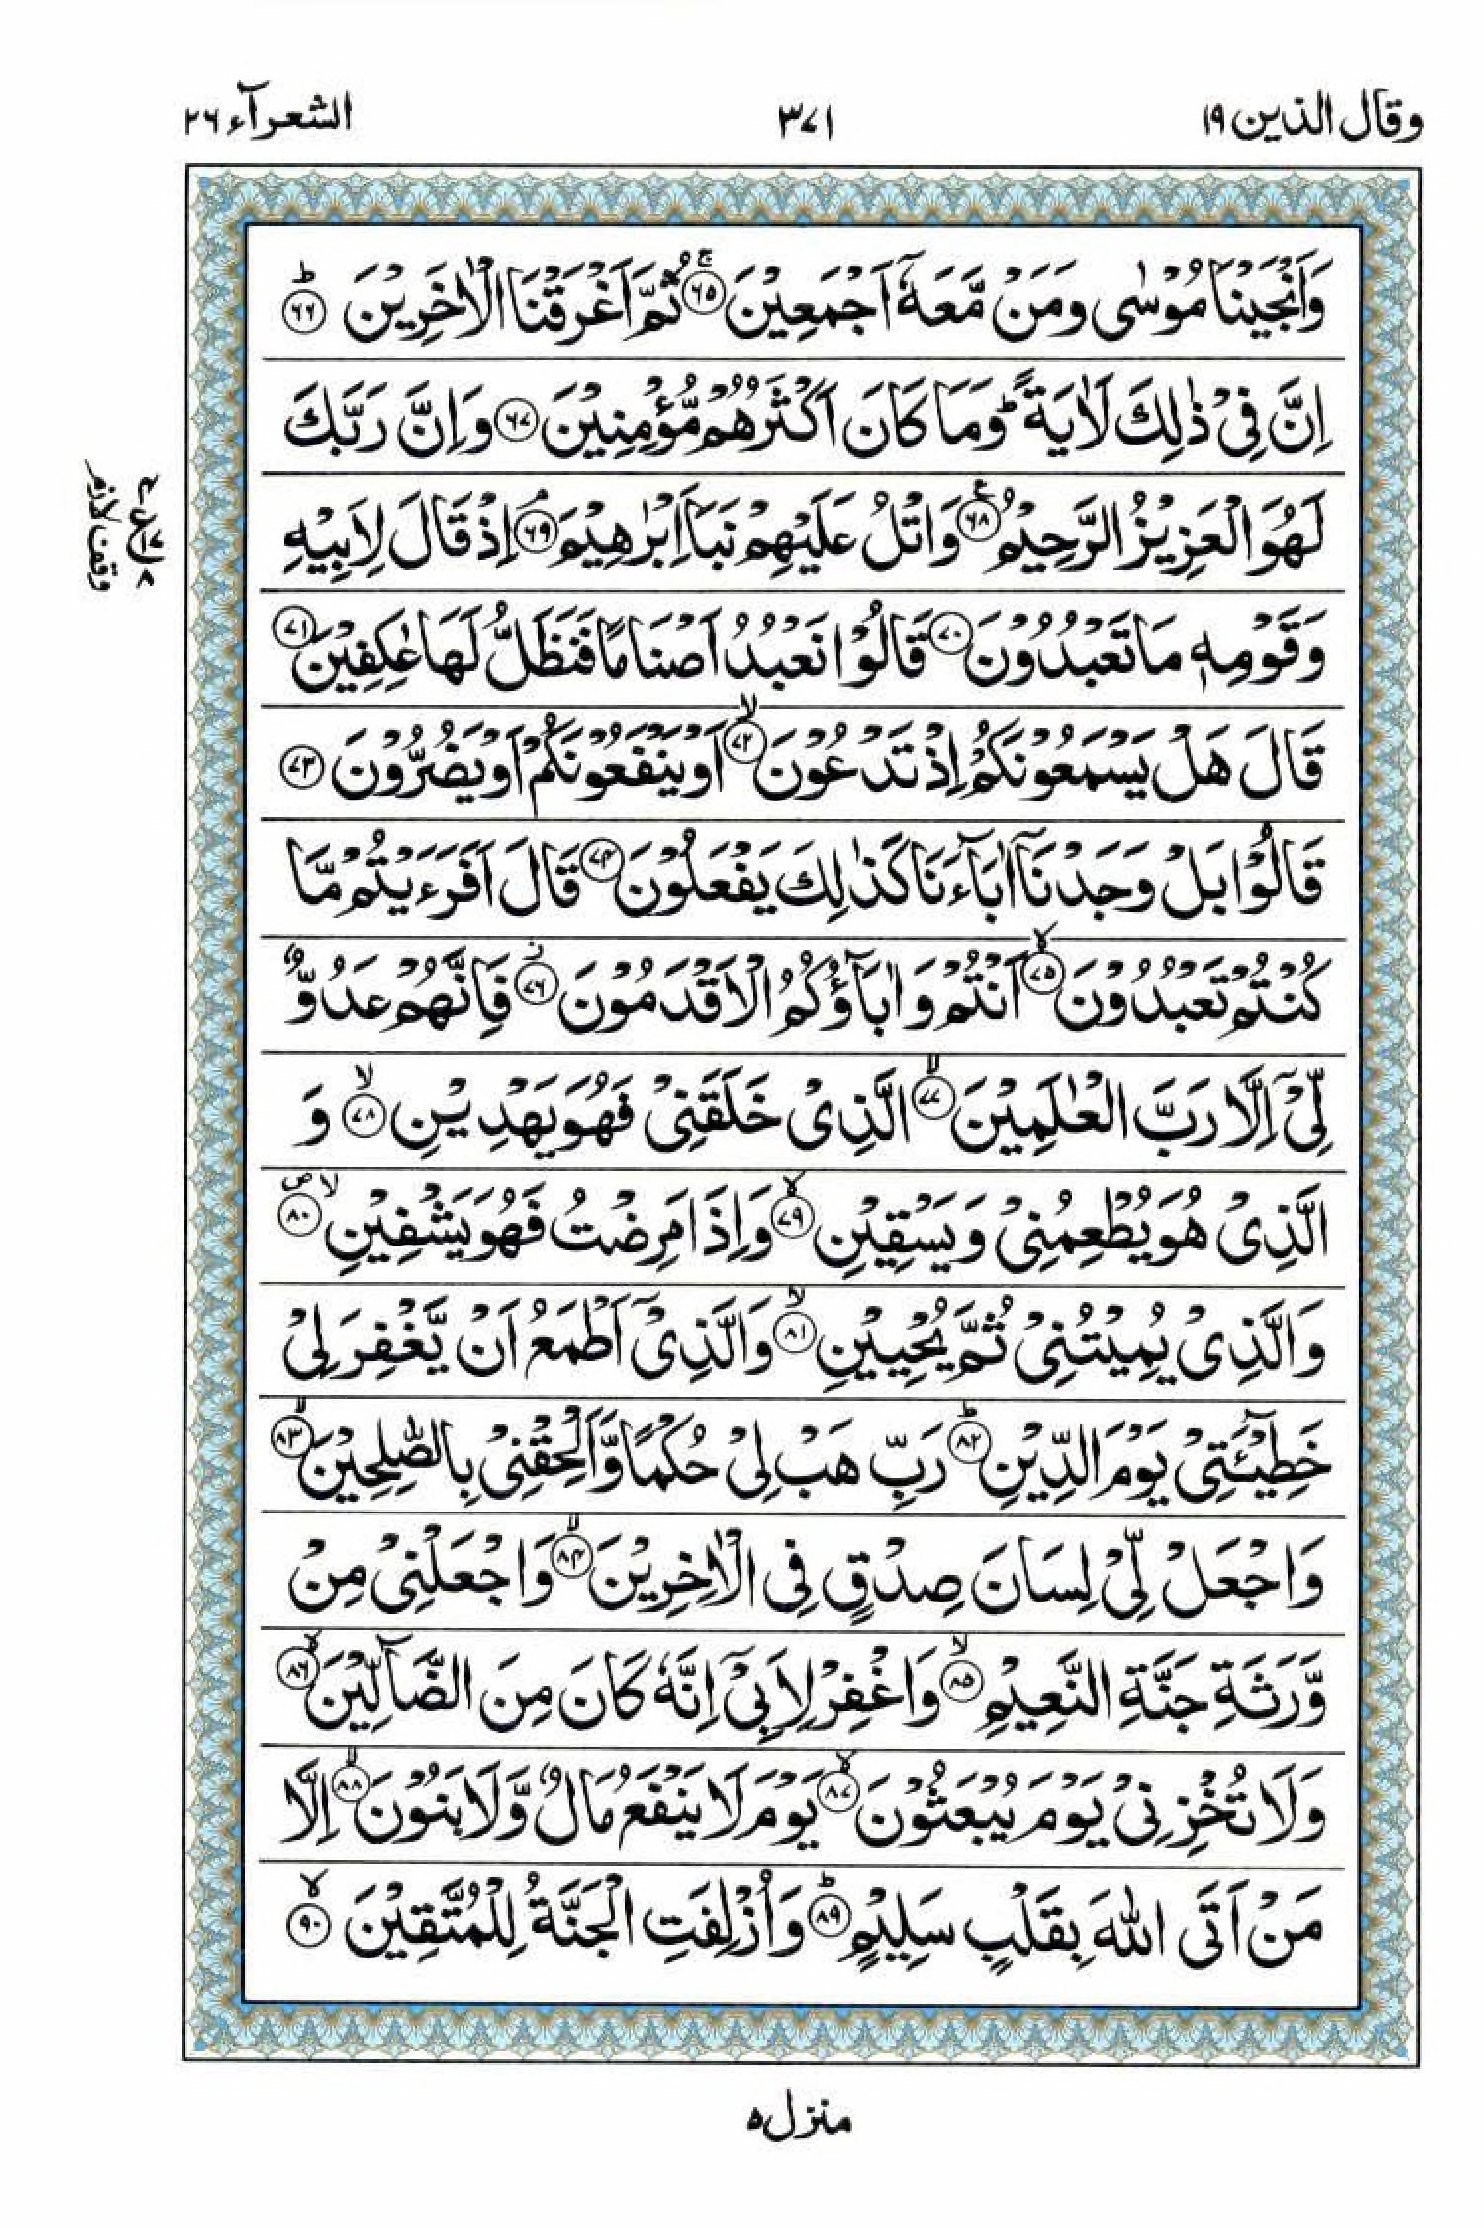 وقال الذین ۱۹
۳۷۱
الشعرآء ۲۶
وَاَنْجَيْنَا مُوْسٰى وَمَنْ مَّعَهٗۤ اَجْمَعِيْنَ ﴿۶۵﴾ۚ ثُمَّ اَغْرَقْنَا الْاٰخَرِيْنَ ﴿۶۶﴾ؕ
اِنَّ فِىْ ذٰلِكَ لَاٰيَةً ؕ وَمَا كَانَ اَكْثَرُهُمْ مُّؤْمِنِيْنَ ﴿۶۷﴾ وَاِنَّ رَبَّكَ
لَهُوَ الْعَزِيْزُ الرَّحِيْمُ ﴿۶۸﴾ۧ وَاتْلُ عَلَيْهِمْ نَبَاَ اِبْرٰهِيْمَ ﴿۶۹﴾ۘ اِذْ قَالَ لِاَبِيْهِ
وَقَوْمِهٖ مَا تَعْبُدُوْنَ ﴿۷۰﴾ قَالُوْا نَعْبُدُ اَصْنَامًا فَنَظَلُّ لَهَا عٰكِفِيْنَ ﴿۷۱﴾
قَالَ هَلْ يَسْمَعُوْنَكُمْ اِذْ تَدْعُوْنَ ﴿۷۲﴾ۙ اَوْ يَنْفَعُوْنَكُمْ اَوْ يَضُرُّوْنَ ﴿۷۳﴾
قَالُوْا بَلْ وَجَدْنَاۤ اٰبَآءَنَا كَذٰلِكَ يَفْعَلُوْنَ ﴿۷۴﴾ قَالَ اَفَرَءَيْتُمْ مَّا
كُنْتُمْ تَعْبُدُوْنَ ﴿۷۵﴾ۙ اَنْتُمْ وَاٰبَآؤُكُمُ الْاَقْدَمُوْنَ ﴿۷۶﴾ز فَاِنَّهُمْ عَدُوٌّ
لِّىْۤ اِلَّا رَبَّ الْعٰلَمِيْنَ ﴿۷۷﴾ۙ الَّذِىْ خَلَقَنِىْ فَهُوَ يَهْدِيْنِ ﴿۷۸﴾ۙ وَ
الَّذِىْ هُوَ يُطْعِمُنِىْ وَيَسْقِيْنِ ﴿۷۹﴾ۙ وَاِذَا مَرِضْتُ فَهُوَ يَشْفِيْنِ ﴿۸۰﴾ۙ ص
وَالَّذِىْ يُمِيْتُنِىْ ثُمَّ يُحْيِيْنِ ﴿۸۱﴾ۙ وَالَّذِىْۤ اَطْمَعُ اَنْ يَّغْفِرَ لِىْ
خَطِيْٓئَتِىْ يَوْمَ الدِّيْنِ ﴿۸۲﴾ؕ رَبِّ هَبْ لِىْ حُكْمًا وَّاَلْحِقْنِىْ بِالصّٰلِحِيْنَ ﴿۸۳﴾ۙ
وَاجْعَلْ لِّىْ لِسَانَ صِدْقٍ فِى الْاٰخِرِيْنَ ﴿۸۴﴾ۙ وَاجْعَلْنِىْ مِنْ
وَّرَثَةِ جَنَّةِ النَّعِيْمِ ﴿۸۵﴾ۙ وَاغْفِرْ لِاَبِىْۤ اِنَّهٗ كَانَ مِنَ الضَّآلِّيْنَ ﴿۸۶﴾ۙ
وَلَا تُخْزِنِىْ يَوْمَ يُبْعَثُوْنَ ﴿۸۷﴾ۙ يَوْمَ لَا يَنْفَعُ مَالٌ وَّلَا بَنُوْنَ ﴿۸۸﴾ۙ اِلَّا
مَنْ اَتَى اللّٰهَ بِقَلْبٍ سَلِيْمٍ ﴿۸۹﴾ؕ وَاُزْلِفَتِ الْجَنَّةُ لِلْمُتَّقِيْنَ ﴿۹۰﴾ۙ
وقف لازم
منزل ۵